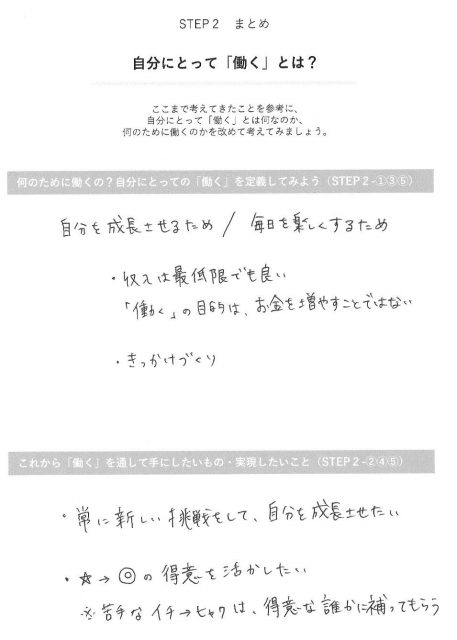 STEP2 まとめ
自分にとって「働く」とは？
ここまで考えてきたことを参考に、
自分にとって「働く」とは何なのか、
何のために働くのかを改めて考えてみましょう。
何のために働くの？自分にとっての「働く」を定義してみよう（STEP2-①③⑤）
自分を成長させるため / 毎日を楽しくするため
・収入は最低限でも良い
「働く」の目的は、お金を増やすことではない
・きっかけづくり
これから「働く」を通して手にしたいもの・実現したいこと（STEP2-②④⑤）
・常に新しい挑戦をして、自分を成長させたい
・☆→◎の得意を活かしたい
※苦手なイチ→ヒャクは、得意な誰かに補ってもらう